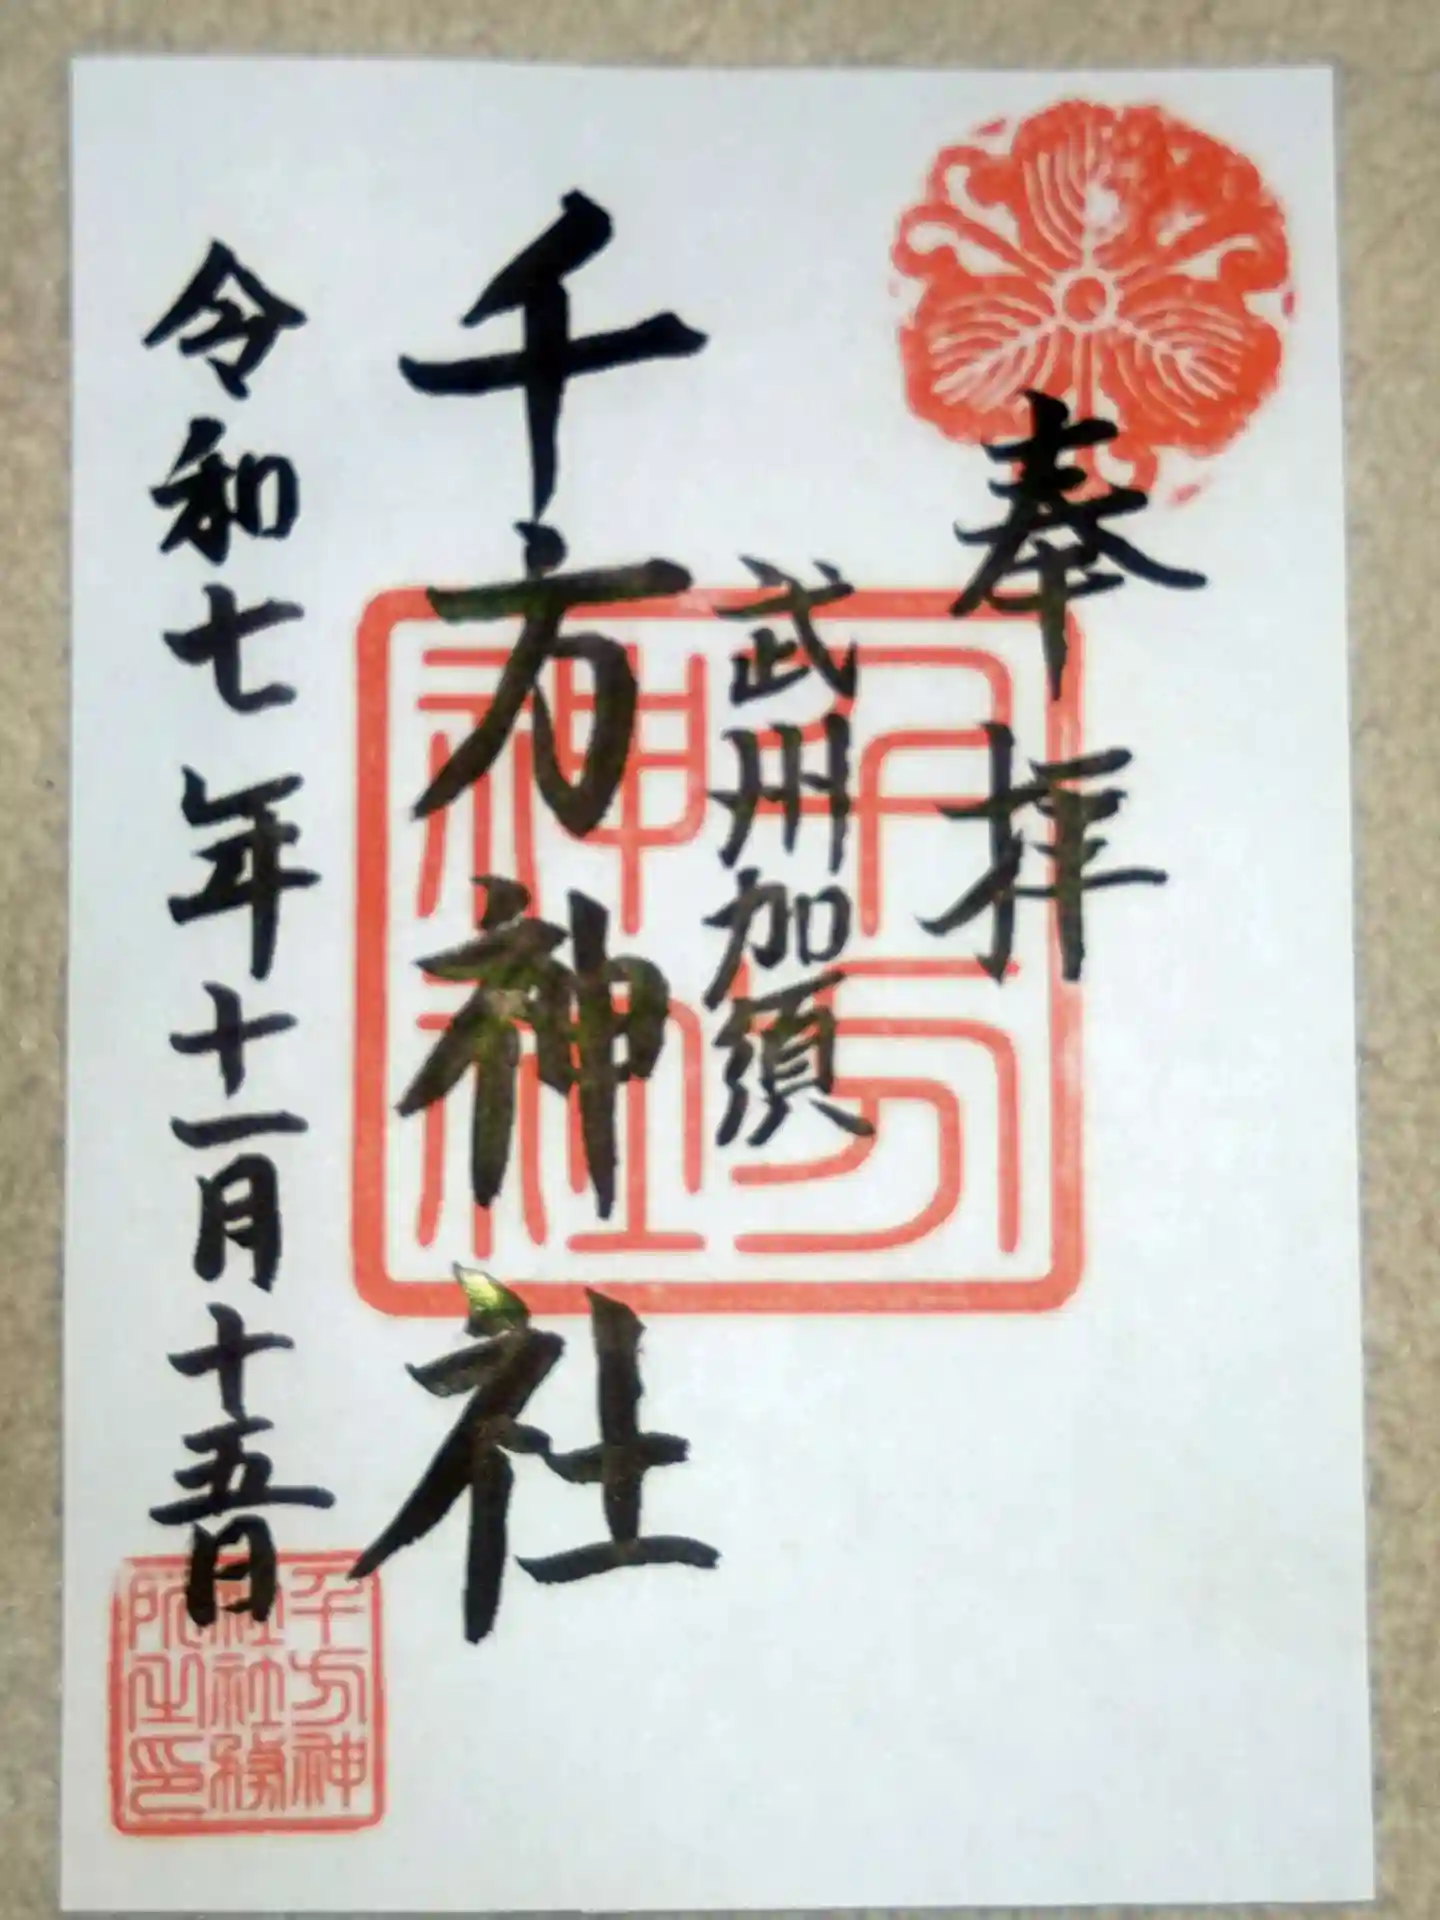 奉拝
武州加須
千方神社
令和七年十一月十五日
千方神社
千方神社社務所之印